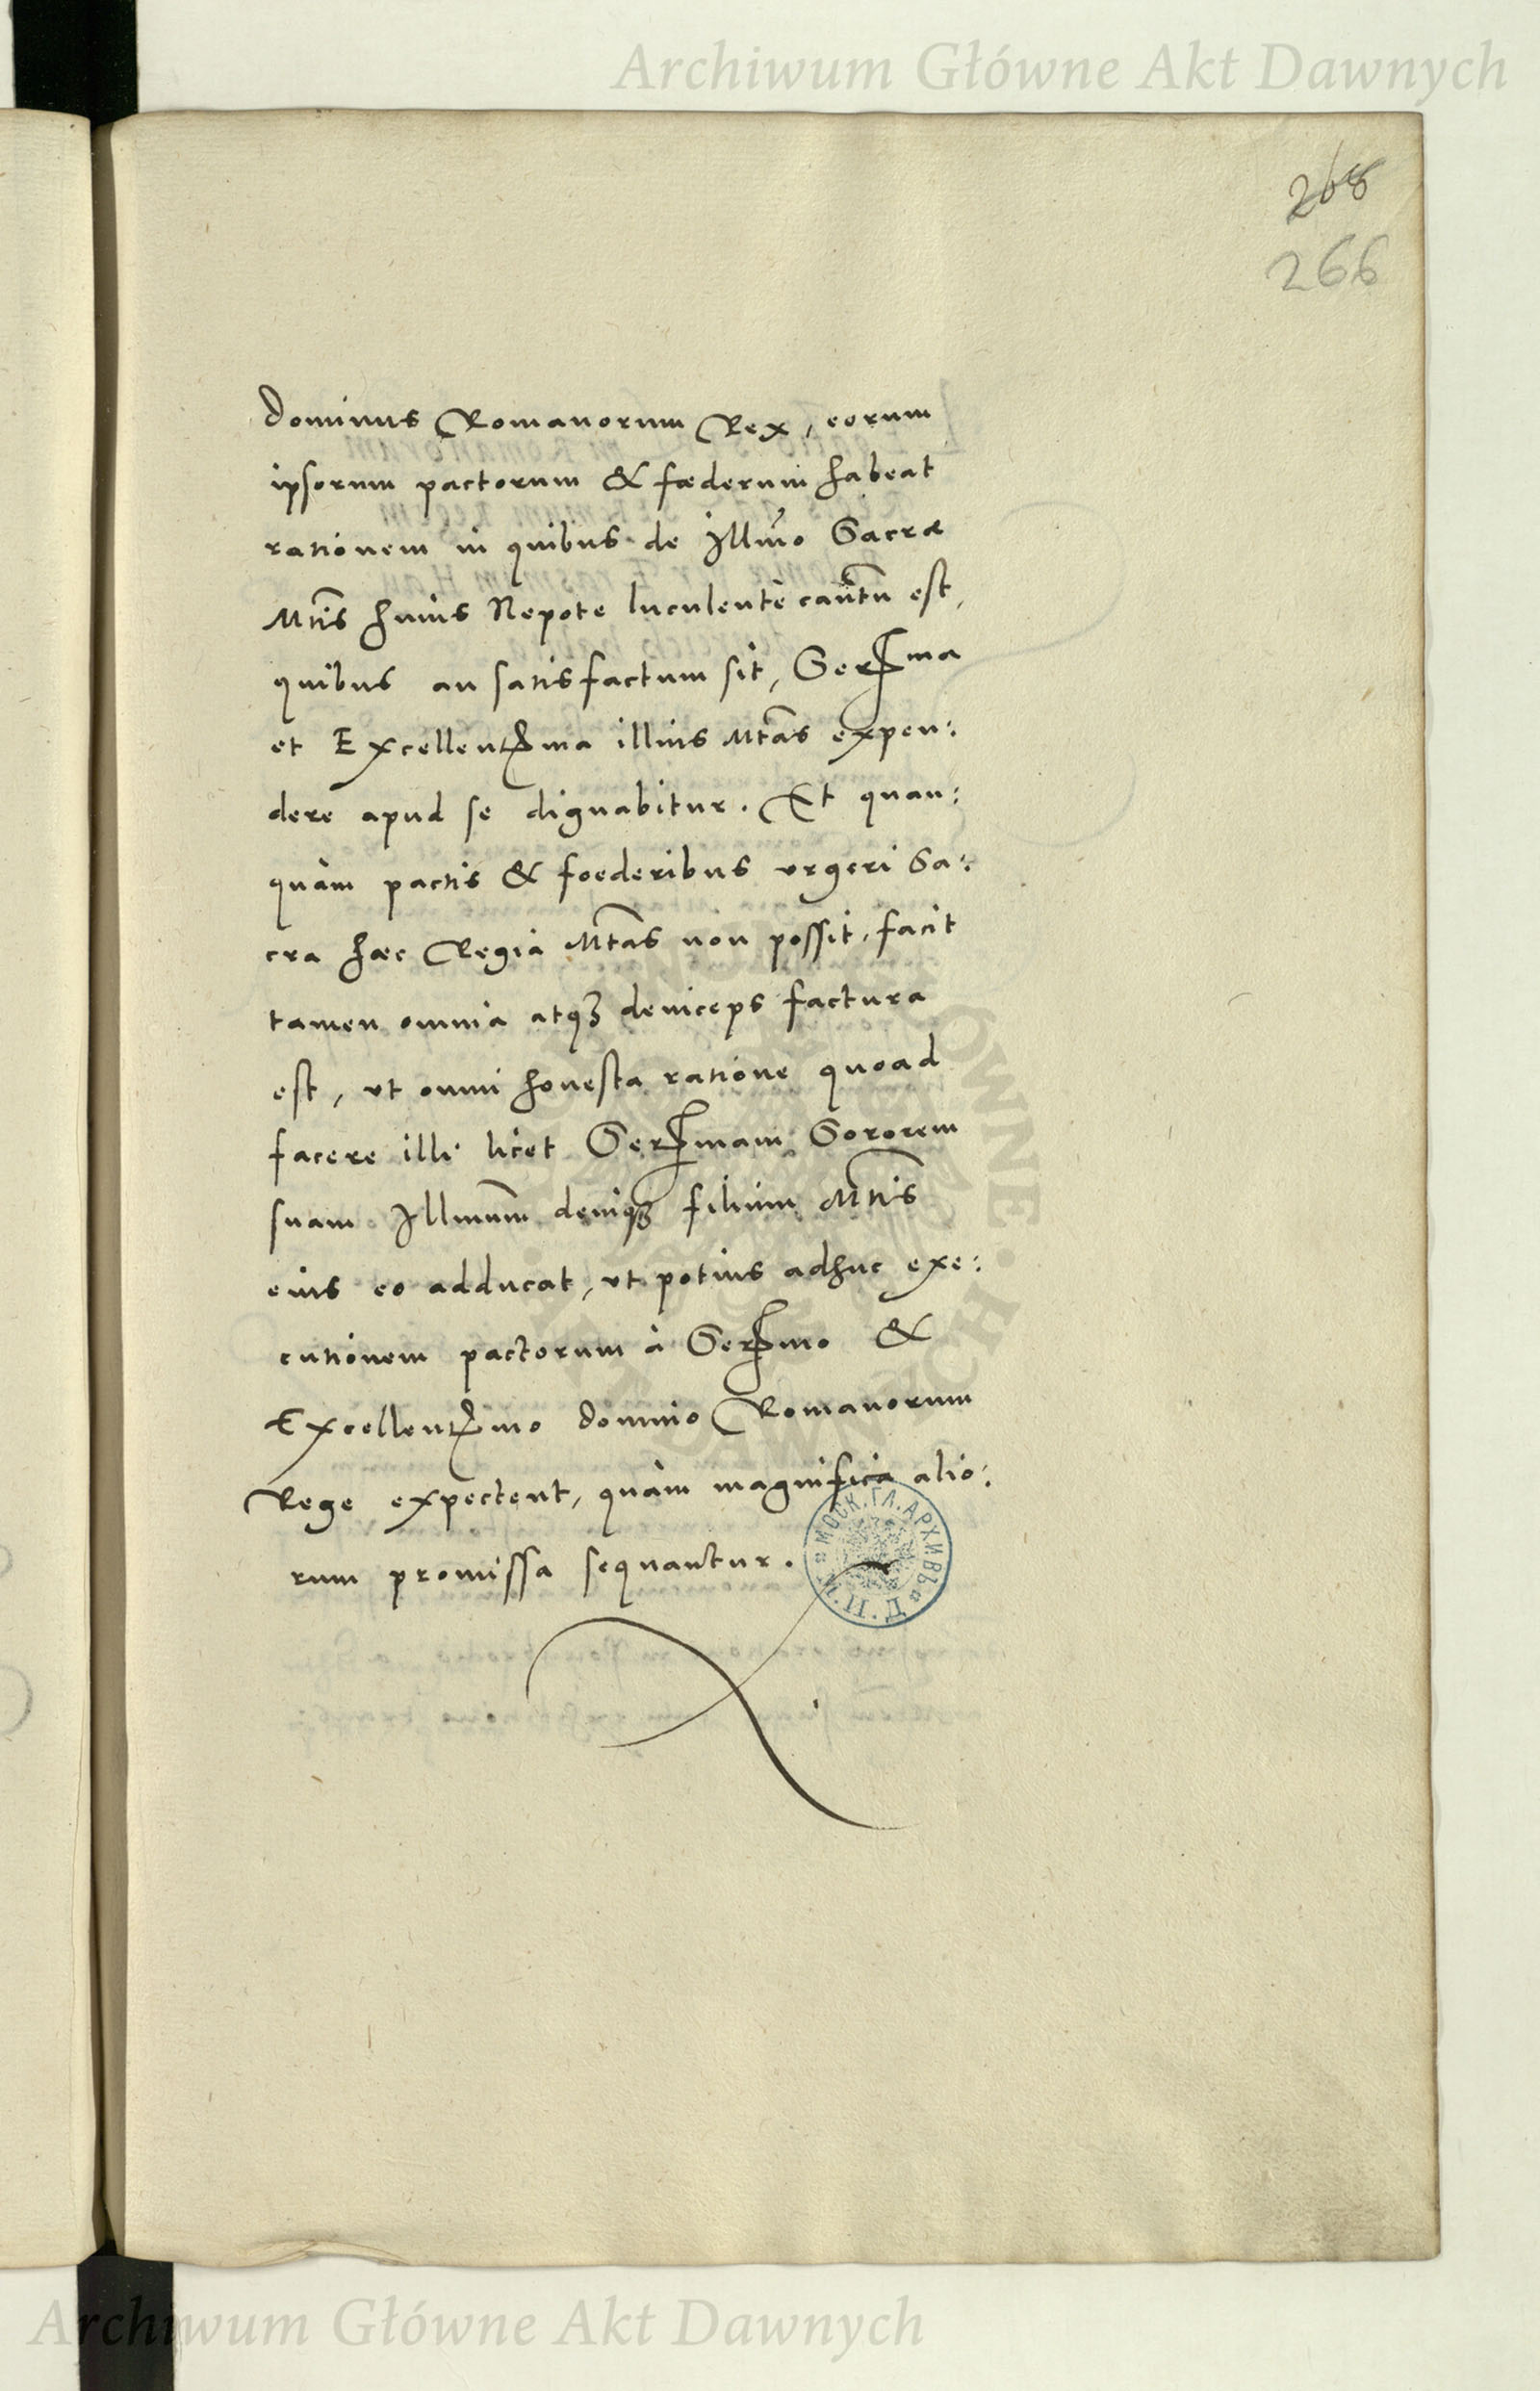 Archiwum Główne Akt Dawnych
268
266
Dominus Romanorum Rex, eorum
ipsorum pactorum & fœderum habeat
rationem in quibus de Illmo Sacræ
Mtis huius Nepote luculentè cautum est,
quibus an satisfactum sit, Serssma
et Excellentssma illius Mtas expen:
dere apud se dignabitur. Et quan:
quàm pactis & foederibus urgeri Sa:
cra hæc Regia Mtas non possit, facit
tamen omnia atq3 deinceps factura
est, ut omni honesta ratione quoad
facere illi licet Serssmam Sororem
suam Illmumm deniq3 filium Mtis
eius eo adducat, ut potius adhuc exe:
cutionem pactorum à Serssmo &
Excellentssmo domino Romanorum
Rege expectent, quàm magnifica alio:
rum promissa sequantur.
МОСК. ГЛ. АРХИВЪ
М. И. Д.
Archiwum Główne Akt Dawnych